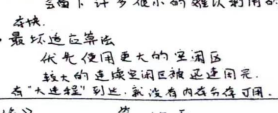 会留下许多很小的难以利用的
存块.
·最坏适应算法
优先使用更大的空闲区
较大的连续空闲区被迅速用完.
有“大进程”到达,就没有内存分区可用.